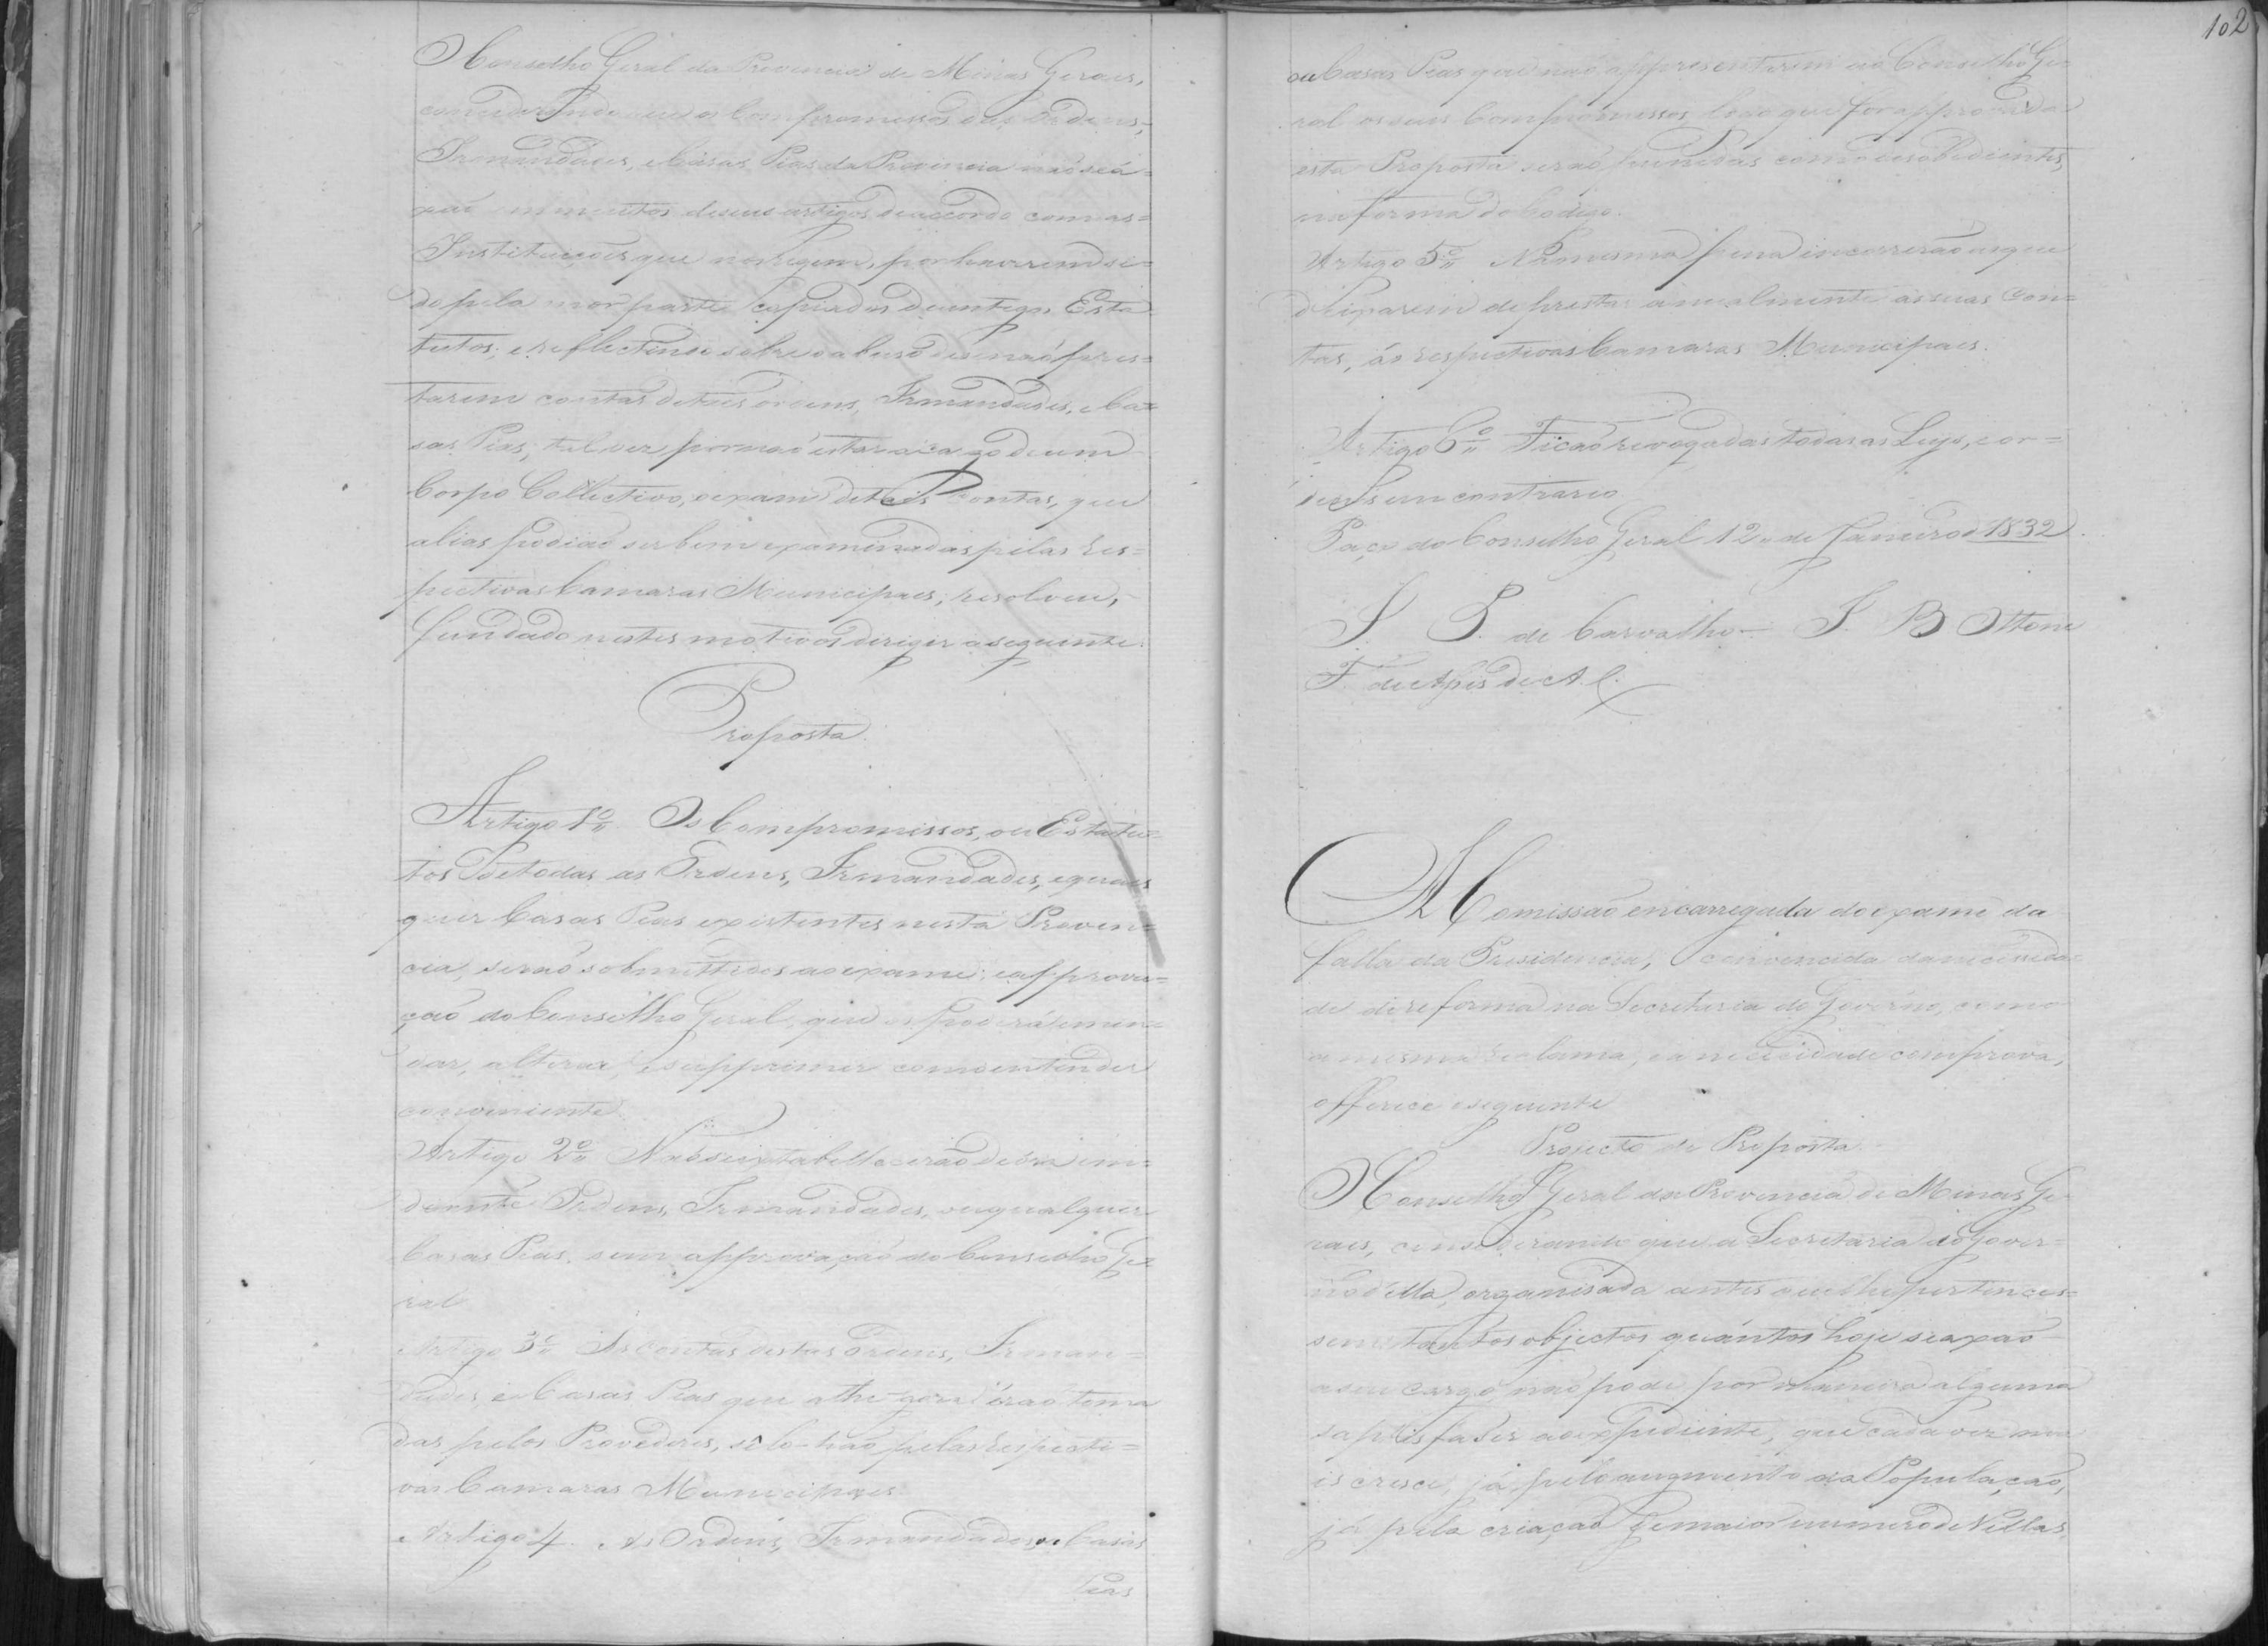 O Conselho Geral da Provincia de Minas Geraes,
considerando que os Compromissos das Ordens,
Irmandades, e Casas Pias da Provincia não seá=
xaõ em muitos de seus artigos de accordo com as=
Instituiçoẽs que nos regem, por haverem si=
do pela mór parte copiados d'antigos Esta
tutos; e reflectindo sobre o abuso de se naõ pres=
tarem contas de taes ordens, Irmandades, e Ca=
sas Pias, talvez por naõ estar a cargo de um
Corpo Collectivo, o exame de taes contas, que
alias podiaõ ser bem examinadas pelas Res=
pectivas Camaras Municipaes; resolveu,
fundado nestes motivos dirigir a seguinte.
Proposta.
Artigo 1º Os Compromissos, ou Estatu=
tos de todas as Ordens, Irmandades, e quaes
quer Casas Pias existentes nesta Provin=
cia, seraõ submettidos ao exame, e approva=
çaõ do Conselho Geral, que os poderá emen=
dar, alterar, e supprimir como entender
conveniente.
Artigo 2º Naõ se estabelleceraõ d'ora em=
deante Ordens, Irmandades, ou qualquer
Casas Pias, sem approvaçaõ do Conselho Ge=
ral
Artigo 3º As contas destas Ordens, Irman=
dades, e Casas Pias que athe gora éraõ toma
das pelos Provedores, sê lo-haõ pelas respecti=
vas Camaras Municipaes.
Artigo 4. As Ordens, Irmandades, ou Casas
Pias
102
ou Casas Pias que naõ appresentarem ao Conselho Ge=
ral os seus Compromissos logo que for approvada
esta Proposta seraõ punidas como desobedientes,
na forma do Codigo.
Artigo 5º Na mesma pena incorreraõ as que
deixarem de prestar annualmente as suas Con=
tas, ás respectivas Camaras Municipaes.
Artigo 6º Ficaõ revogadas todas as Leys, e or=
dens em contrario
Paço do Conselho Geral 12 de Janeiro d 1832.
J. P. de Carvalho — J. B Ottoni
F. de Assis de A.
A Comissaõ encarregada do exame da
falla da Presidencia, convencida da necessida=
de de reforma na Secretaria do Governo, como
a mesma reclama, e a necessidade comprova,
offerece o seguinte
Projecto de Proposta
O Conselho Geral da Provincia de Minas Ge
raes, considerando que a Secretaria do Gover=
no d'ella, organisada antes que lhe pertences=
sem tantos objectos quantos hoje se axaõ
a seu cargo naõ pode por maneira alguma
saptisfaser ao expediente, que cada vez ma
is cresce, já pelo augmento da Populaçaõ,
já pela criaçaõ de maior numero de Villas,